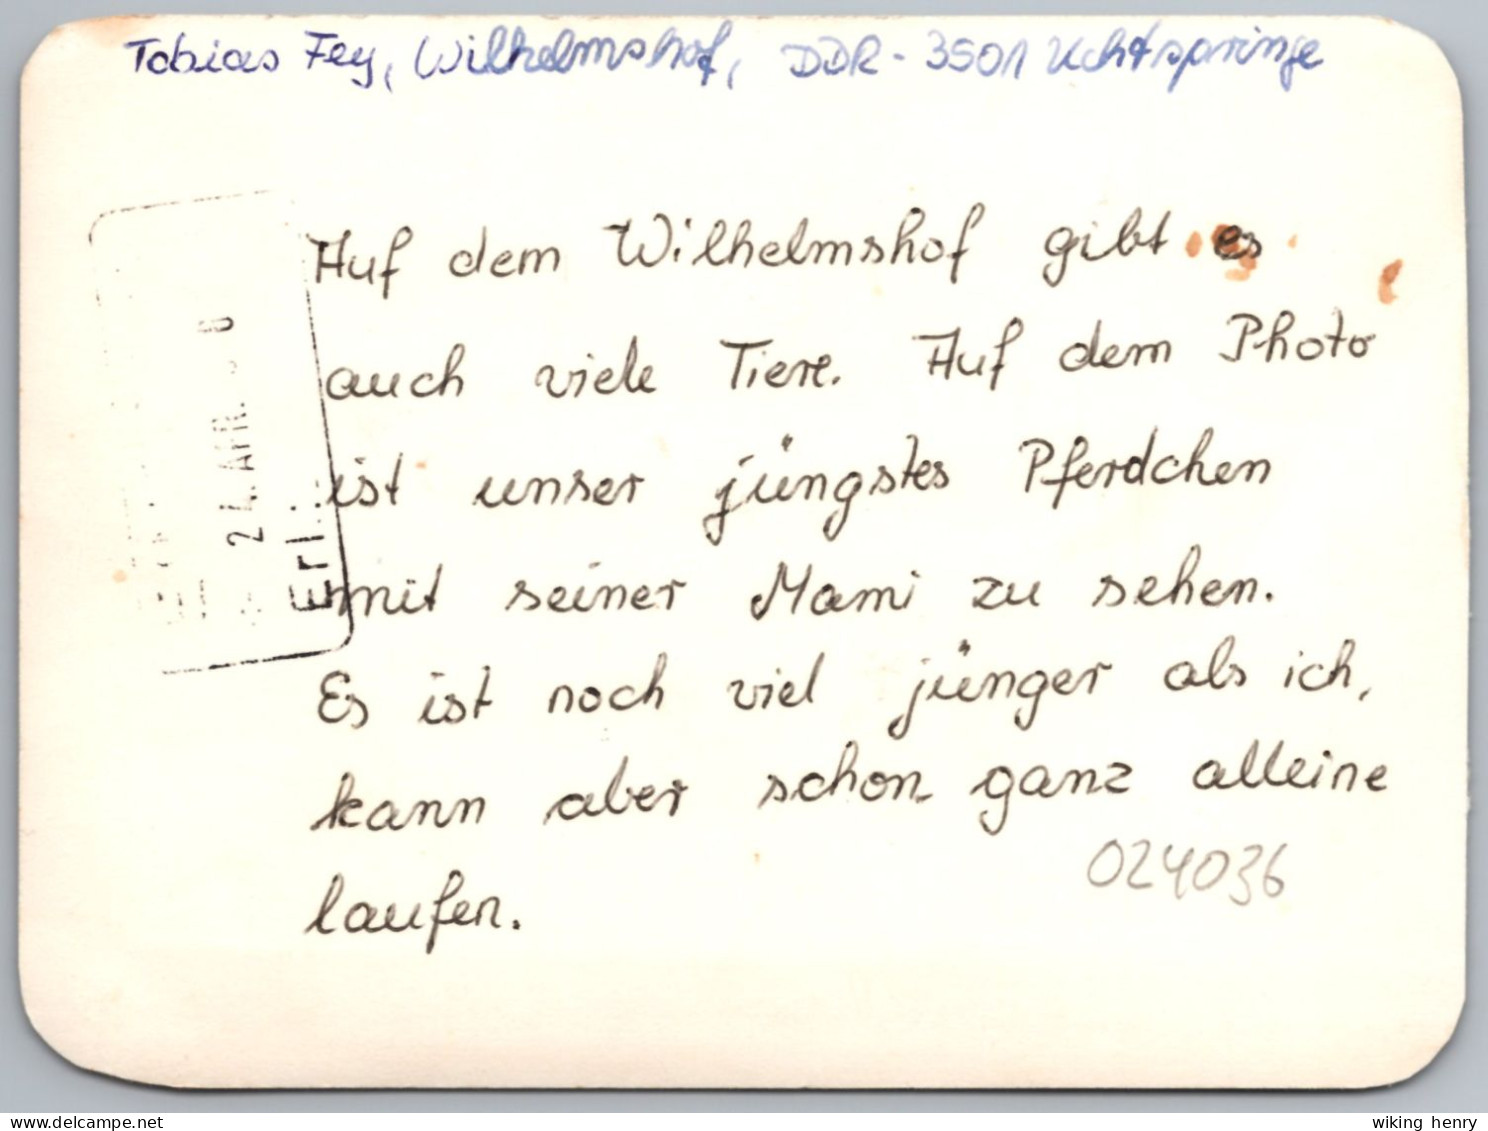 Tobias Fey, Wilhelmshof, DDR-3501 Uchtspringe
Auf dem Wilhelmshof gibt es
auch viele Tiere. Auf dem Photo
ist unser jüngstes Pferdchen
mit seiner Mami zu sehen.
Es ist noch viel jünger als ich,
kann aber schon ganz alleine
laufen.
024036
24. APR.
Erl.:
delcampe.net
wiking henry